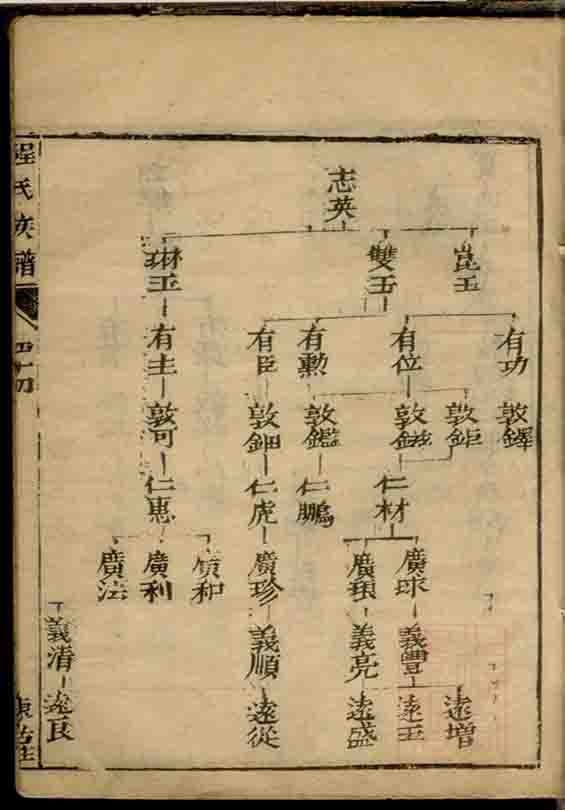 志英
崑玉
雙玉
琳玉
有功
有位
有勳
有臣
有圭
敦鐸
敦鉅
敦鎡
敦鑑
敦鈿
敦可
仁材
仁鵬
仁虎
仁惠
廣球
廣珍
廣和
廣利
廣法
義豐
義亮
義順
義清
遠增
遠玉
遠盛
遠從
遠良
程氏族譜